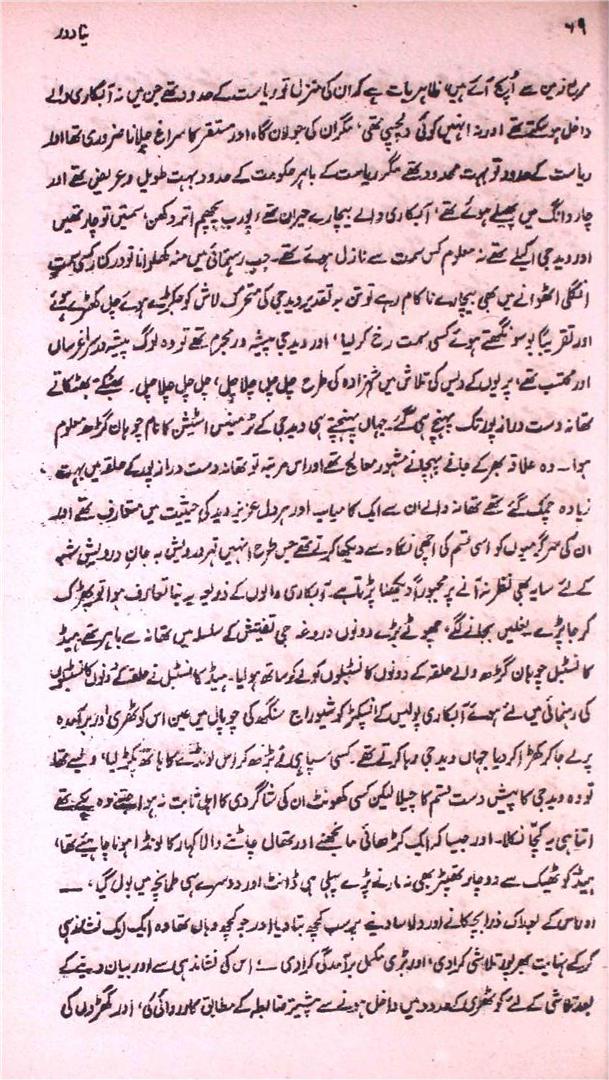 ۶۹
نیا دور
مربع زمین سے اُپج آئے ہیں، ظاہر بات ہے کہ ان کی منزل تو ریاست کے حدود تھے جن میں نہ آبکاری والے
داخل ہو سکتے تھے اور نہ انہیں کوئی دلچسپی تھی، مگر ان کی جولان گاہ اور مستقر کا سراغ چلانا ضروری تھا اور
ریاست کے حدود تو بہت محدود تھے مگر ریاست کے باہر حکومت کے حدود بہت طویل و عریض تھے اور
چار دانگ میں پھیلے ہوئے تھے، آبکاری والے بیچارے حیران تھے، پورب پچھم اتر دکھن، سمتیں تو چار تھیں
اور ویدجی اکیلے تھے نہ معلوم کس سمت سے نازل ہوتے تھے۔ جب رہنمائی میں منہ کھلوانا تو درکنار کسی سمت
انگلی اٹھوانے میں بھی بیچارے ناکام رہے تو تن بہ تقدیر ویدجی کی متحرک لاش کو جکڑے ہوئے چل کھڑے ہوئے
اور تقریباً بو سونگھتے ہوئے کسی سمت رخ کر لیا، اور ویدجی پیشہ ور مجرم تھے تو وہ لوگ پیشہ ور سراغرساں
اور محتسب تھے، پریوں کے دیس کی تلاش میں شہزادہ کی طرح چل چل چلا چل، چل چل چلا چل۔ بھٹکتے بھٹکاتے
تھانہ دست دراز پور تک پہنچ ہی گئے۔ جہاں پہنچتے ہی ویدجی کے ٹرمینس اسٹیشن کا نام چوہان گڑھ معلوم
ہوا۔ وہ علاقہ بھر کے جانے پہچانے مشہور معالج تھے اور اس مرتبہ تو تھانہ دست دراز پور کے حلقہ میں بہت
زیادہ چمک گئے تھے تھانہ والے ان سے ایک کامیاب اور ہر دل عزیز وید کی حیثیت میں متعارف تھے اور
ان کی سرگرمیوں کو اسی قسم کی اچھی نگاہ سے دیکھا کرتے تھے جس طرح انہیں قہر درویش بہ جان درویش شبہ
کے لئے سایہ بھی نظر نہ آنے پر مجبوراً دیکھنا پڑتا ہے۔ آبکاری والوں کے ذریعہ یہ نیا تعارف ہوا تو پھڑک
کر جا پڑے بغلیں بجانے لگے، چھوٹے بڑے دونوں دروغہ جی تفتیش کے سلسلہ میں تھانہ سے باہر تھے ہیڈ
کانسٹبل چوہان گڑھ والے حلقہ کے دونوں کانسٹبلوں کو لے کر ساتھ ہو لیا۔ ہیڈ کانسٹبل نے حلقہ کے دونوں کانسٹبلوں
کی رہنمائی میں لئے ہوئے آبکاری پولیس کے انسپکٹر کو شیوراج سنگھ کی چوپال میں عین اس کوٹھری اور برآمدہ
پر لے جا کر کھڑا کر دیا جہاں ویدجی رہا کرتے تھے۔ کسی سپاہی نے بڑھ کر اس لونڈے کا ہاتھ پکڑ لیا، ویسے تھا
تو وہ ویدجی کا پیش دست قسم کا چیلا لیکن کسی کھونٹ ان کی شاگردی کا اہل ثابت نہ ہوا جتنے وہ پکے تھے
اتنا ہی یہ کچّا نکلا۔ اور جیسا کہ ایک کڑھائی مانجھنے اور تھال چاٹنے والا کہار کا لونڈا ہونا چاہیئے تھا،
ہیڈ کو ٹھیک سے دو چار تھپڑ بھی نہ مارنے پڑے پہلی ہی ڈانٹ اور دوسرے ہی طمانچہ میں بول گیا، —
اور اس کے بعد ذرا چمکانے اور دلاسا دینے پر سب کچھ بتا دیا اور جو کچھ وہاں تھا وہ ایک ایک نشاندہی
کر کے نہایت بھرپور تلاشی کرا دی، اور بڑی مکمل برآمدگی کرا دی — اس کی نشاندہی سے اور بیان دینے کے
بعد تلاشی کے لئے کوٹھری کے حدود میں داخل ہونے سے پیشتر ضابطہ کے مطابق کارروائی کی، اور گھڑولی کی